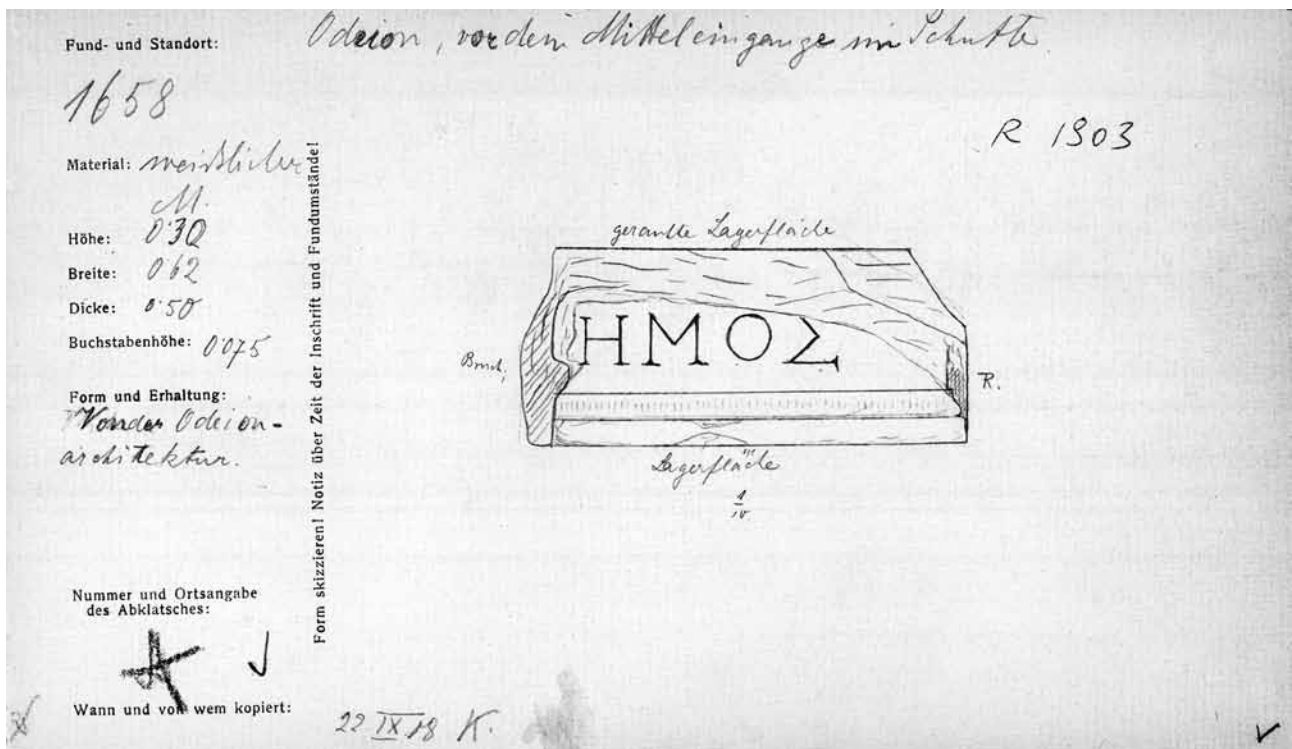 Fund- und Standort: Odeion, vor dem Mitteleingange im Schutte.
1658
R 1903
Material: weisslicher
M.
Höhe: 0'30
Breite: 0'62
Dicke: 0'50
Buchstabenhöhe: 0'075
Form und Erhaltung:
Von der Odeion-
architektur.
Form skizzieren! Notiz über Zeit der Inschrift und Fundumstände!
gerauhte Lagerfläche
ΗΜΟΣ
Bruch,
R.
Lagerfläche
Nummer und Ortsangabe
des Abklatsches:
Wann und von wem kopiert: 22 IX 18 K.